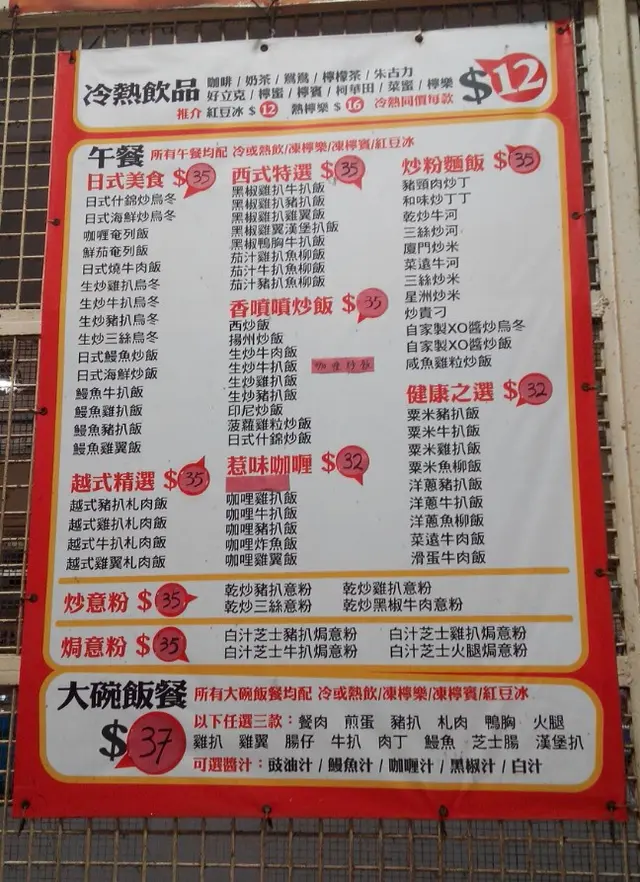 冷熱飲品
咖啡 / 奶茶 / 鴛鴦 / 檸檬茶 / 朱古力
好立克 / 檸蜜 / 檸賓 / 柯華田 / 菜蜜 / 檸樂
推介 紅豆冰 $ 12 熱檸樂 $ 16 冷熱同價每款
$12
午餐 所有午餐均配 冷或熱飲/凍檸樂/凍檸賓/紅豆冰
日式美食 $35
日式什錦炒烏冬
日式海鮮炒烏冬
咖喱奄列飯
鮮茄奄列飯
日式燒牛肉飯
生炒雞扒烏冬
生炒牛扒烏冬
生炒豬扒烏冬
生炒三絲烏冬
日式鰻魚炒飯
日式海鮮炒飯
鰻魚牛扒飯
鰻魚雞扒飯
鰻魚豬扒飯
鰻魚雞翼飯
越式精選 $35
越式豬扒札肉飯
越式雞扒札肉飯
越式牛扒札肉飯
越式雞翼札肉飯
西式特選 $35
黑椒雞扒牛扒飯
黑椒雞扒豬扒飯
黑椒雞扒雞翼飯
黑椒雞翼漢堡扒飯
黑椒鴨胸牛扒飯
茄汁雞扒魚柳飯
茄汁牛扒魚柳飯
茄汁豬扒魚柳飯
香噴噴炒飯 $35
西炒飯
揚州炒飯
生炒牛肉飯
生炒牛扒飯
生炒雞扒飯
生炒豬扒飯
印尼炒飯
菠蘿雞粒炒飯
日式什錦炒飯
惹味咖喱 $32
咖哩雞扒飯
咖哩牛扒飯
咖哩豬扒飯
咖哩炸魚飯
咖哩雞翼飯
炒粉麵飯 $35
豬頸肉炒丁
和味炒丁丁
乾炒牛河
三絲炒河
廈門炒米
菜遠牛河
三絲炒米
星洲炒米
炒貴刁
自家製XO醬炒烏冬
自家製XO醬炒飯
咸魚雞粒炒飯
健康之選 $32
粟米豬扒飯
粟米牛扒飯
粟米雞扒飯
粟米魚柳飯
洋蔥豬扒飯
洋蔥牛扒飯
洋蔥魚柳飯
菜遠牛肉飯
滑蛋牛肉飯
炒意粉 $35
乾炒豬扒意粉 乾炒雞扒意粉
乾炒三絲意粉 乾炒黑椒牛肉意粉
焗意粉 $35
白汁芝士豬扒焗意粉 白汁芝士雞扒焗意粉
白汁芝士牛扒焗意粉 白汁芝士火腿焗意粉
大碗飯餐 所有大碗飯餐均配 冷或熱飲/凍檸樂/凍檸賓/紅豆冰
$37
以下任選三款：餐肉 煎蛋 豬扒 札肉 鴨胸 火腿
雞扒 雞翼 腸仔 牛扒 肉丁 鰻魚 芝士腸 漢堡扒
可選醬汁：豉油汁 / 鰻魚汁 / 咖喱汁 / 黑椒汁 / 白汁